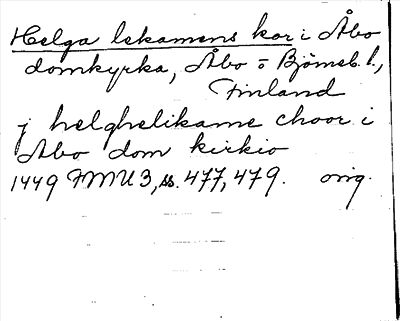 Helga lekamens kor i Åbo
domkyrka, Åbo o Björneb. l.,
Finland
j helghelikame choor i
Åbo dom kirkio
1449 FMU 3, ss. 477, 479. orig.